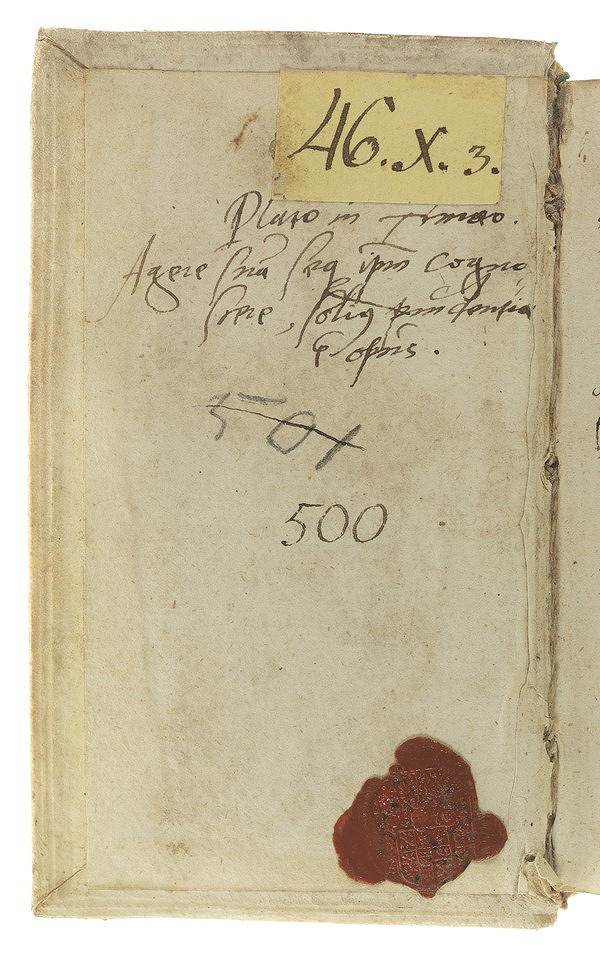 46. X. 3.
Plato in Timæo.
Agere sua seq ipm cogno
scere, solius prudentia
ē opus.
501
500